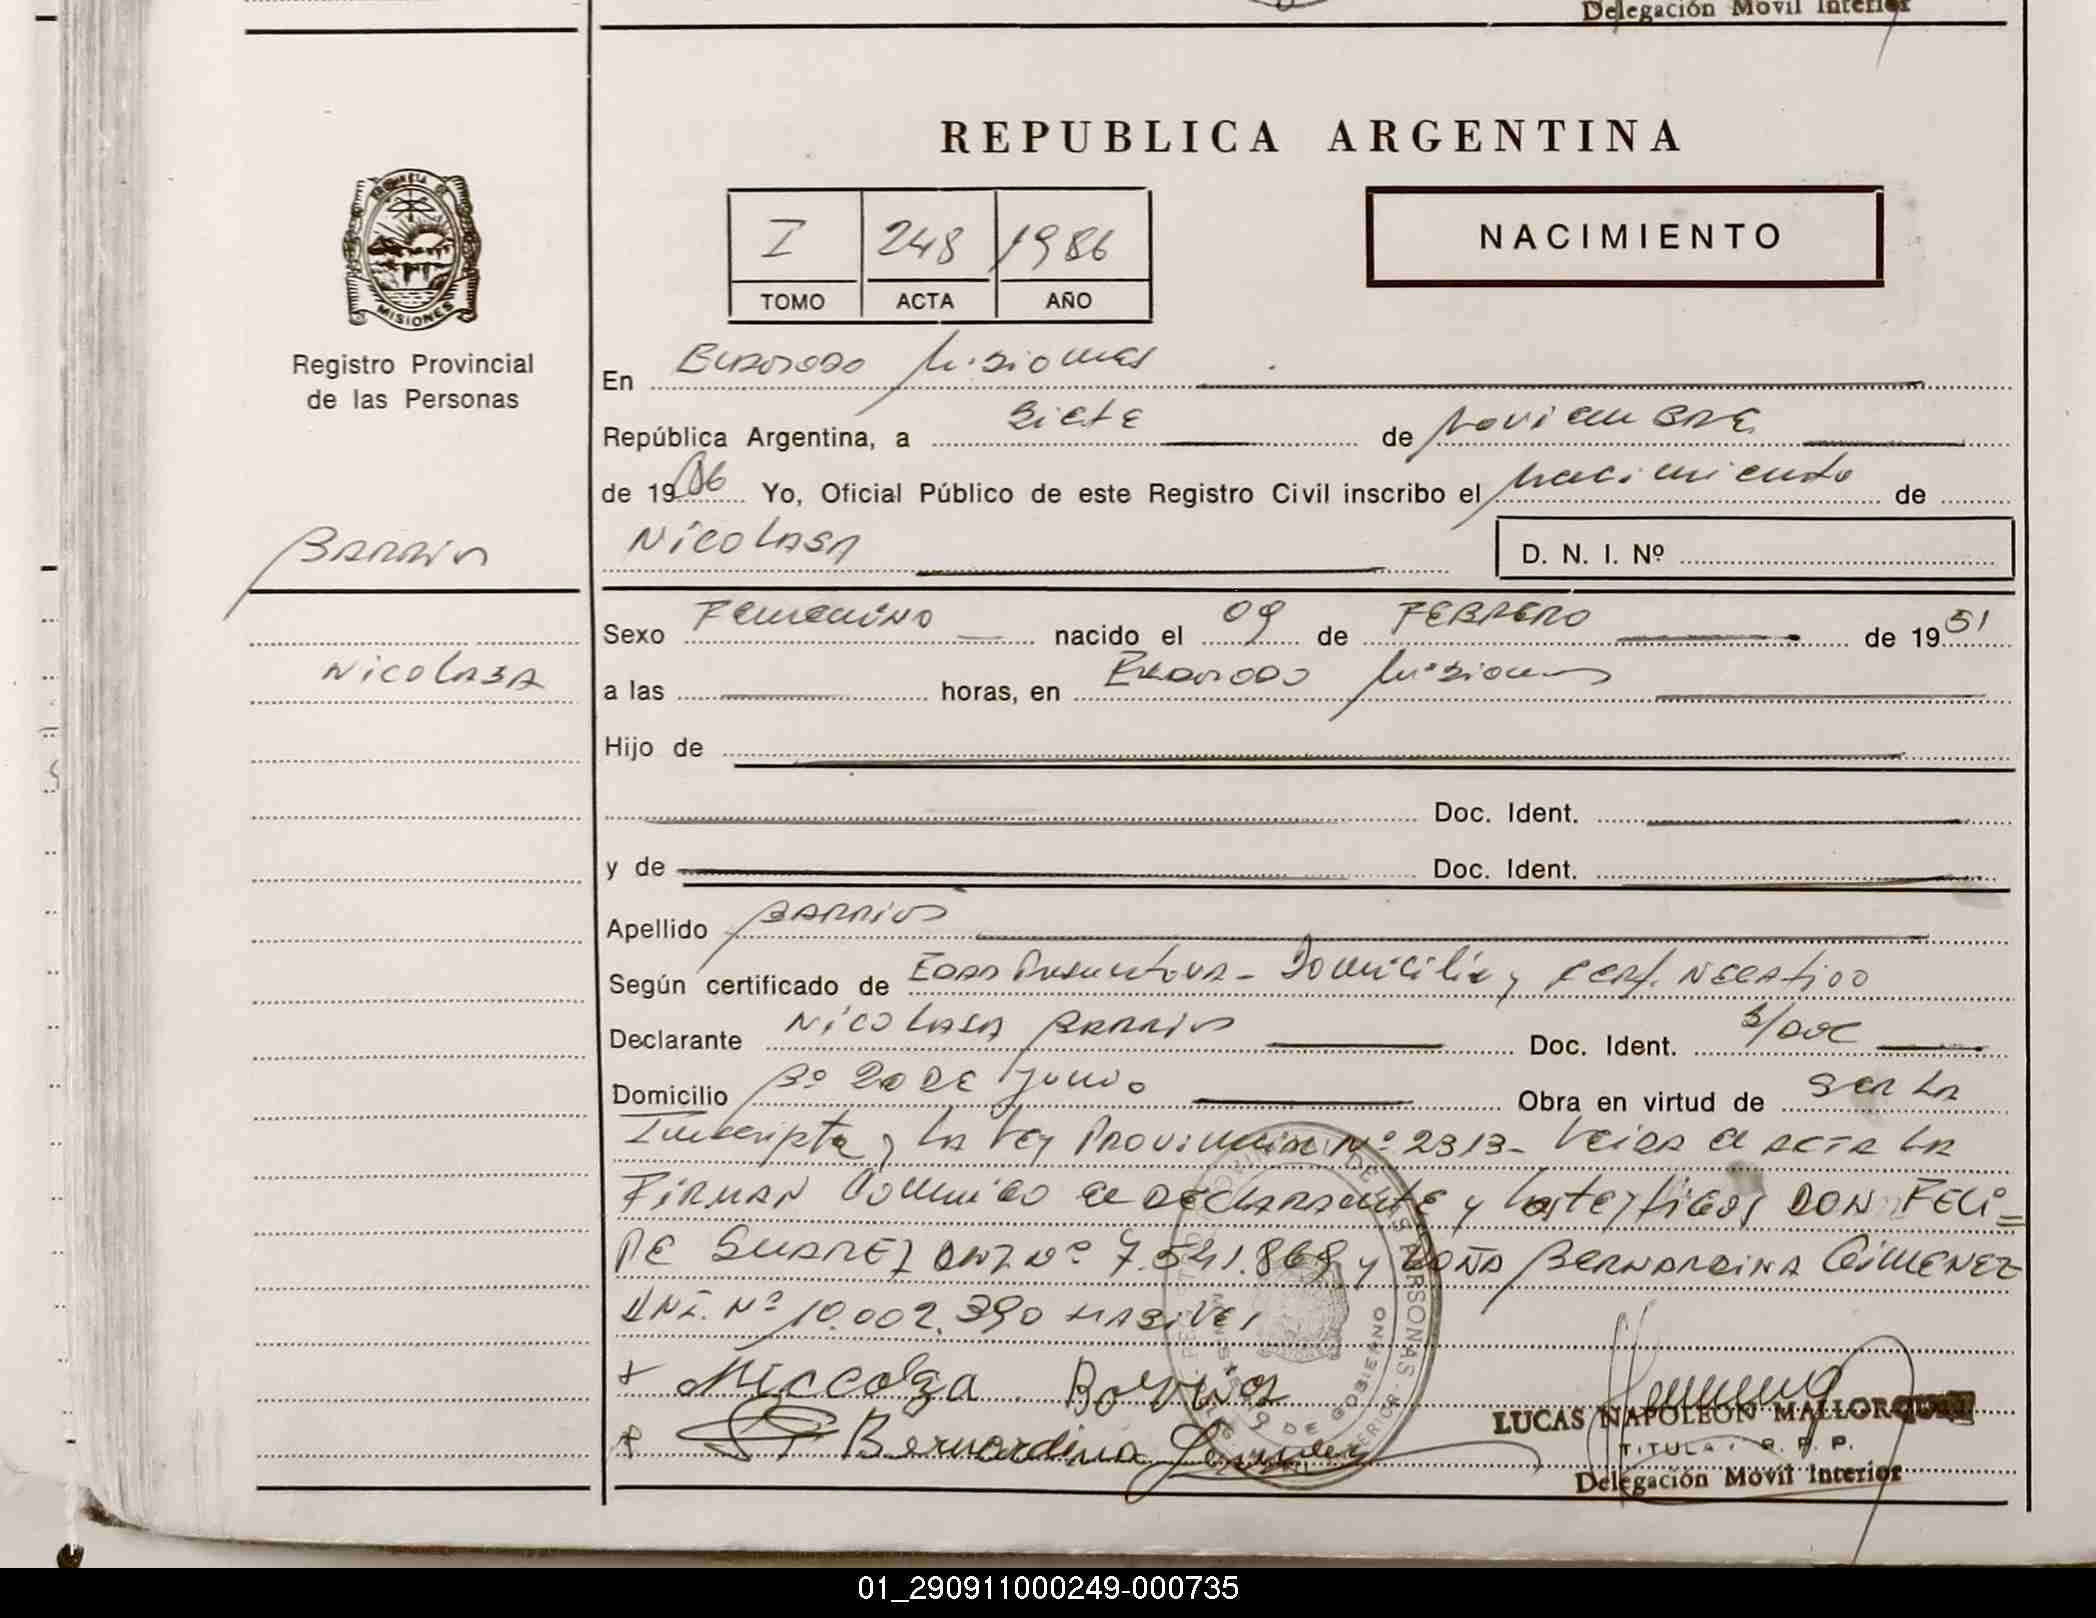 Delegación Movil Interior
REPUBLICA ARGENTINA
PROVINCIA DE
MISIONES
Registro Provincial
de las Personas
I 248 1986
TOMO ACTA AÑO
NACIMIENTO
En Eldorado Misiones
República Argentina, a siete de Noviembre
de 1986 Yo, Oficial Público de este Registro Civil inscribo el Nacimiento de
Barrios
Nicolasa
D. N. I. Nº
Sexo Femenino nacido el 09 de FEBRERO de 1951
Nicolasa
a las horas, en Eldorado Misiones
Hijo de
Doc. Ident.
y de Doc. Ident.
Apellido BARRIOS
Según certificado de Edad Presuntiva - Domicilio y Cert. Negativo
Declarante Nicolasa Barrios Doc. Ident. S/Doc
Domicilio Bº 20 DE Junio Obra en virtud de Ser La
Inscripta y La Ley Provincial Nº 2313 - Leida el acta la
Firman conmigo el Declarante y los testigos DON FELI=
PE SUAREZ DNI Nº 7.541.869 y DOÑA BERNARDINA GIMENEZ
DNI. Nº 10.002.390 HABILES
+ Niccolza Borrios
+ Bernardina Gimenez
LUCAS NAPOLEON MALLORQUIN
TITULAR R. P. P.
Delegación Movil Interior
01_290911000249-000735